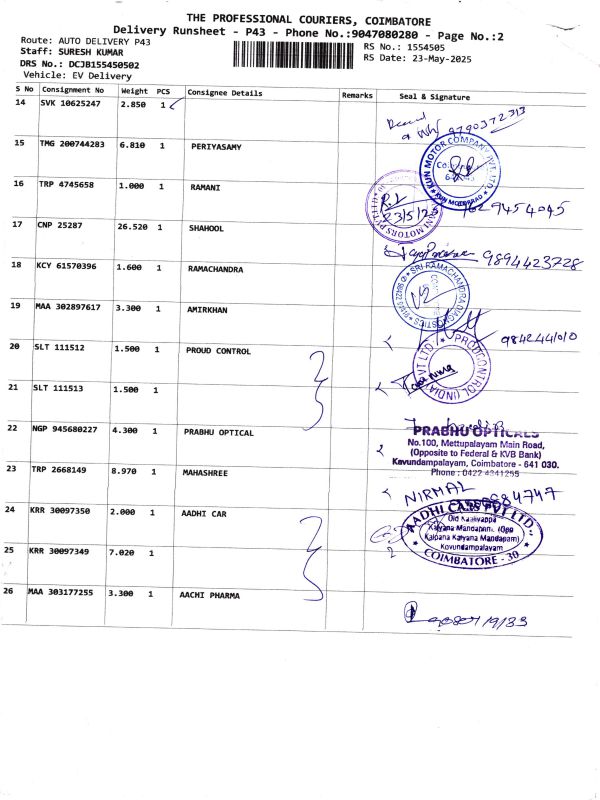 THE PROFESSIONAL COURIERS, COIMBATORE
Delivery Runsheet - P43 - Phone No.:9047080280 - Page No.:2
Route: AUTO DELIVERY P43
Staff: SURESH KUMAR
DRS No.: DCJB155450502
Vehicle: EV Delivery
RS No.: 1554505
RS Date: 23-May-2025
S No Consignment No Weight PCS Consignee Details Remarks Seal & Signature
14 SVK 10625247 2.850 1
9790372313
15 TMG 200744283 6.810 1 PERIYASAMY
KUN MOTOR COMPANY PVT. LTD.
KUN MOTORRAD
16 TRP 4745658 1.000 1 RAMANI
23/5/25
7629454045
17 CNP 25287 26.520 1 SHAHOOL
9894423728
18 KCY 61570396 1.600 1 RAMACHANDRA
SRI RAMACHANDRA DIAGNOSTICS
19 MAA 302897617 3.300 1 AMIRKHAN
984244010
20 SLT 111512 1.500 1 PROUD CONTROL
PRODCONTROL (INDIA) PVT LTD.
21 SLT 111513 1.500 1
22 NGP 945680227 4.300 1 PRABHU OPTICAL
PRABHU OPTICALS
No.100, Mettupalayam Main Road,
(Opposite to Federal & KVB Bank)
Kavundampalayam, Coimbatore - 641 030.
Phone : 0422 4341255
23 TRP 2668149 8.970 1 MAHASHREE
NIRMAL
24 KRR 30097350 2.000 1 AADHI CAR
AADHI CARS PVT LTD.,
Old Kaalivappa
Kalyana Mandapam, (Opp
Kalpana Kalyana Mandapam)
Kovundampalayam
COIMBATORE - 30
25 KRR 30097349 7.020 1
26 MAA 303177255 3.300 1 AACHI PHARMA